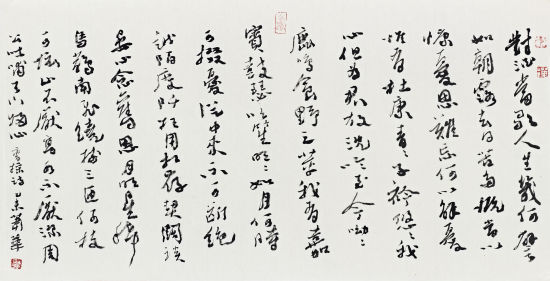 對酒當歌人生幾何譬
如朝露去日苦多慨當以
慷憂思難忘何以解憂
惟有杜康青々子衿悠々我
心但為君故沈吟至今呦々
鹿鳴食野之苹我有嘉
賓鼓瑟吹笙明々如月何時
可掇憂從中來不可斷絕
越陌度阡枉用相存契闊談
讌心念舊恩月明星稀
烏鵲南飛繞樹三匝何枝
可依山不厭高水不厭深周
公吐哺天下歸心 曹操詩 蕭華